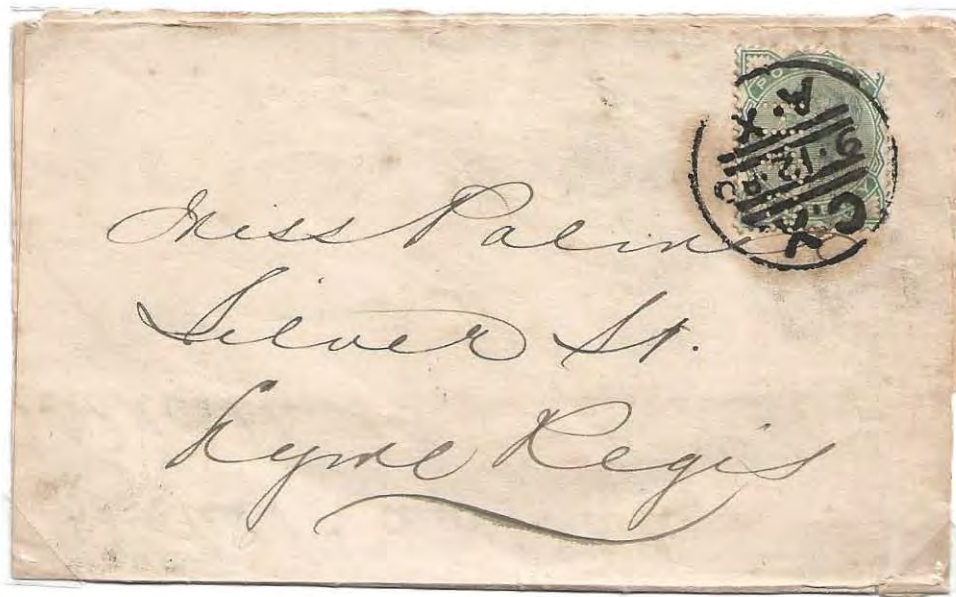 Miss Palmer
Silver St.
Lyme Regis